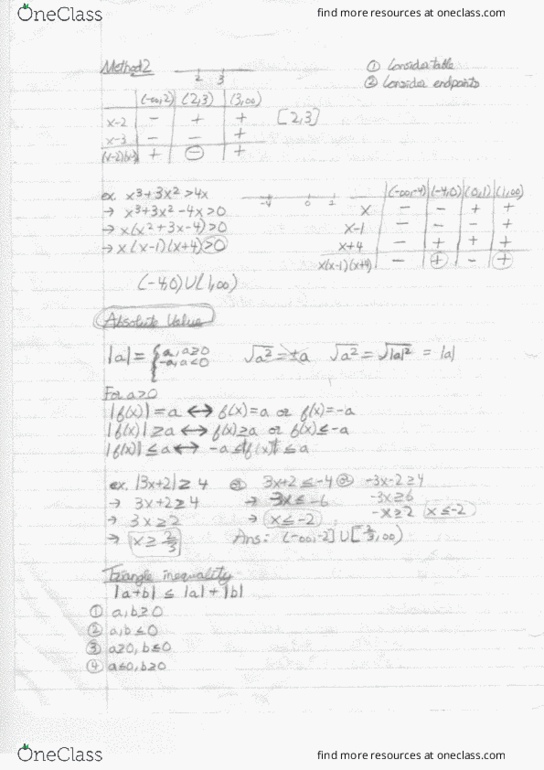 OneClass
find more resources at oneclass.com
Method 2
2 3
① Consider table
② Consider endpoints
(-∞,2) (2,3) (3,∞)
x-2 - + + [2,3]
x-3 - - +
(x-2)(x-3) + - +
ex. x³+3x²>4x
→ x³+3x²-4x>0
→ x(x²+3x-4)>0
→ x(x-1)(x+4)>0
-4 0 1
(-∞,-4) (-4,0) (0,1) (1,∞)
x - - + +
x-1 - - - +
x+4 - + + +
x(x-1)(x+4) - + - +
(-4,0)∪(1,∞)
Absolute Value
|a| = { a, a≥0
-a, a<0
√a² = ±a √a² = √|a|² = |a|
For a≥0
|f(x)| = a ↔ f(x)=a or f(x)=-a
|f(x)| ≥ a ↔ f(x)≥a or f(x)≤-a
|f(x)| ≤ a ↔ -a ≤ f(x) ≤ a
ex. |3x+2| ≥ 4
→ 3x+2 ≥ 4
→ 3x ≥ 2
→ x ≥ 2/3
② 3x+2 ≤ -4
→ 3x ≤ -6
→ x ≤ -2
② -3x-2 ≥ 4
-3x ≥ 6
-x ≥ 2 x ≤ -2
Ans: (-∞,-2]∪[2/3,∞)
Triangle inequality
|a+b| ≤ |a|+|b|
① a,b≥0
② a,b≤0
③ a≥0, b≤0
④ a≤0, b≥0
OneClass
find more resources at oneclass.com